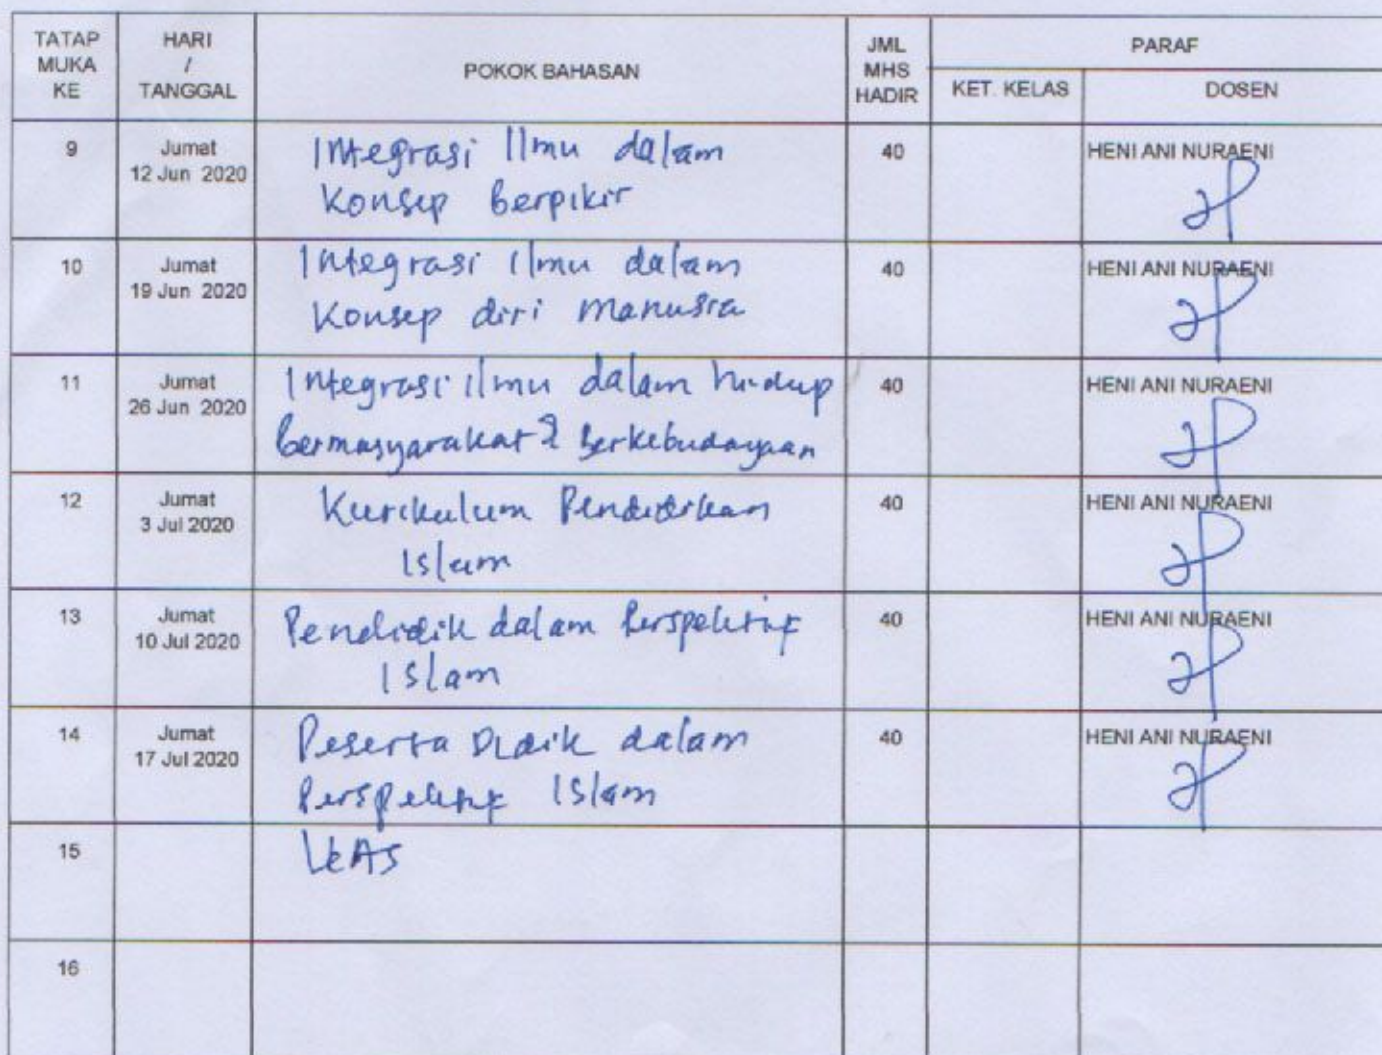 TATAP MUKA KE
HARI / TANGGAL
POKOK BAHASAN
JML MHS HADIR
PARAF
KET. KELAS
DOSEN
9
Jumat
12 Jun 2020
Integrasi Ilmu dalam
Konsep Berpikir
40
HENI ANI NURAENI
10
Jumat
19 Jun 2020
Integrasi Ilmu dalam
Konsep diri Manusia
40
HENI ANI NURAENI
11
Jumat
26 Jun 2020
Integrasi ilmu dalam hidup
bermasyarakat & Berkebudayaan
40
HENI ANI NURAENI
12
Jumat
3 Jul 2020
Kurikulum Pendidikan
Islam
40
HENI ANI NURAENI
13
Jumat
10 Jul 2020
Pendidik dalam Perspektif
Islam
40
HENI ANI NURAENI
14
Jumat
17 Jul 2020
Peserta Didik dalam
Perspektif Islam
40
HENI ANI NURAENI
15
16